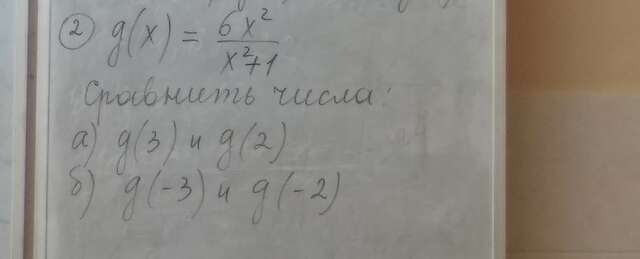 ② g(x) = 6x²/(x²+1)
Сравнить числа:
а) g(3) и g(2)
б) g(-3) и g(-2)